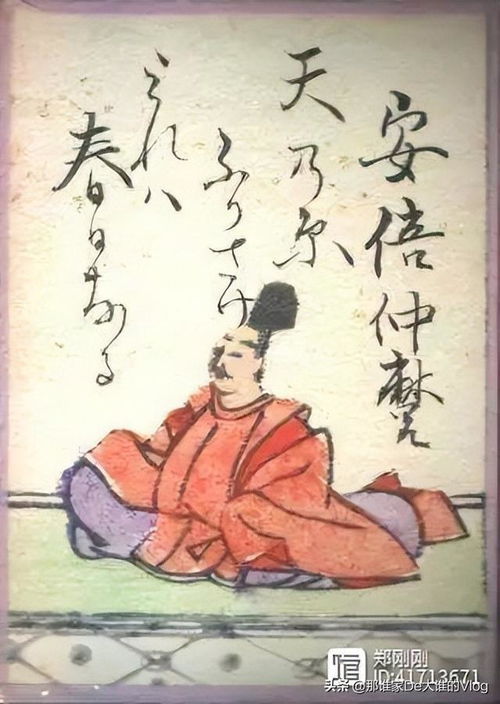 安倍仲麿
天乃原
ふりさけ
みれハ
春日なる
郑刚刚
ID:41713671
头条 @那谁家De大谁的Vlog